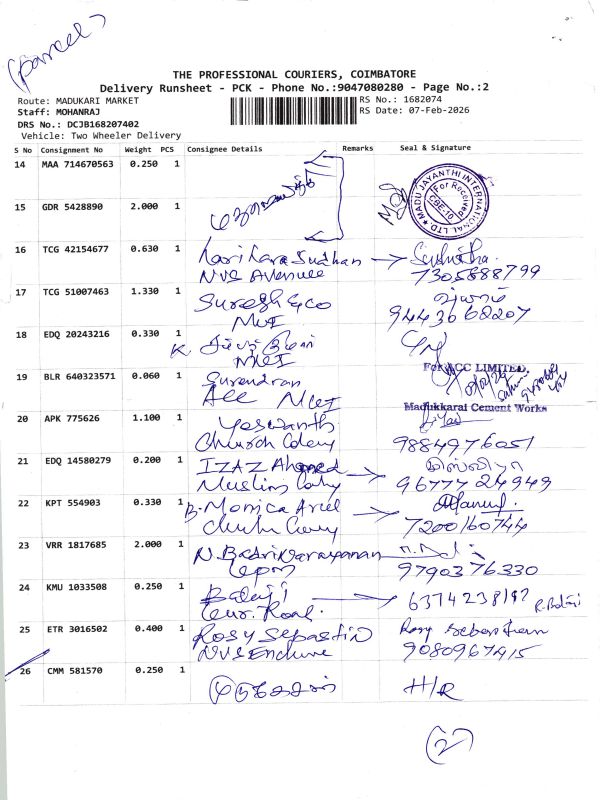 (parcel)
THE PROFESSIONAL COURIERS, COIMBATORE
Delivery Runsheet - PCK - Phone No.:9047080280 - Page No.:2
Route: MADUKARI MARKET
RS No.: 1682074
Staff: MOHANRAJ
RS Date: 07-Feb-2026
DRS No.: DCJB168207402
Vehicle: Two Wheeler Delivery
S No Consignment No Weight PCS Consignee Details Remarks Seal & Signature
14 MAA 714670563 0.250 1
MADU JAYANTHI INTERNATIONAL LTD.
For Received
CBE-10
15 GDR 5428890 2.000 1
16 TCG 42154677 0.630 1 Hari Hara Sudhan
NVS Avenuee 7305888799
17 TCG 51007463 1.330 1 Suresh & co
9443068207
18 EDQ 20243216 0.330 1
19 BLR 640323571 0.060 1 Surendran
For ACC LIMITED,
Madukkarai Cement Works
20 APK 775626 1.100 1 Yeswanth
Church Colony 9884976051
21 EDQ 14580279 0.200 1 IZAZ Ahamed
Muslim Colony 9677724949
22 KPT 554903 0.330 1 B. Monica Ariel
7200160744
23 VRR 1817685 2.000 1 N. Badri Narayanan
9790376330
24 KMU 1033508 0.250 1 Balaji
Road. 6374238192 R. Balaji
25 ETR 3016502 0.400 1 Rosy Sebastin Rosy Sebastian
NVS Enclave 9080967415
26 CMM 581570 0.250 1 முருகேசன் H/R
(2)